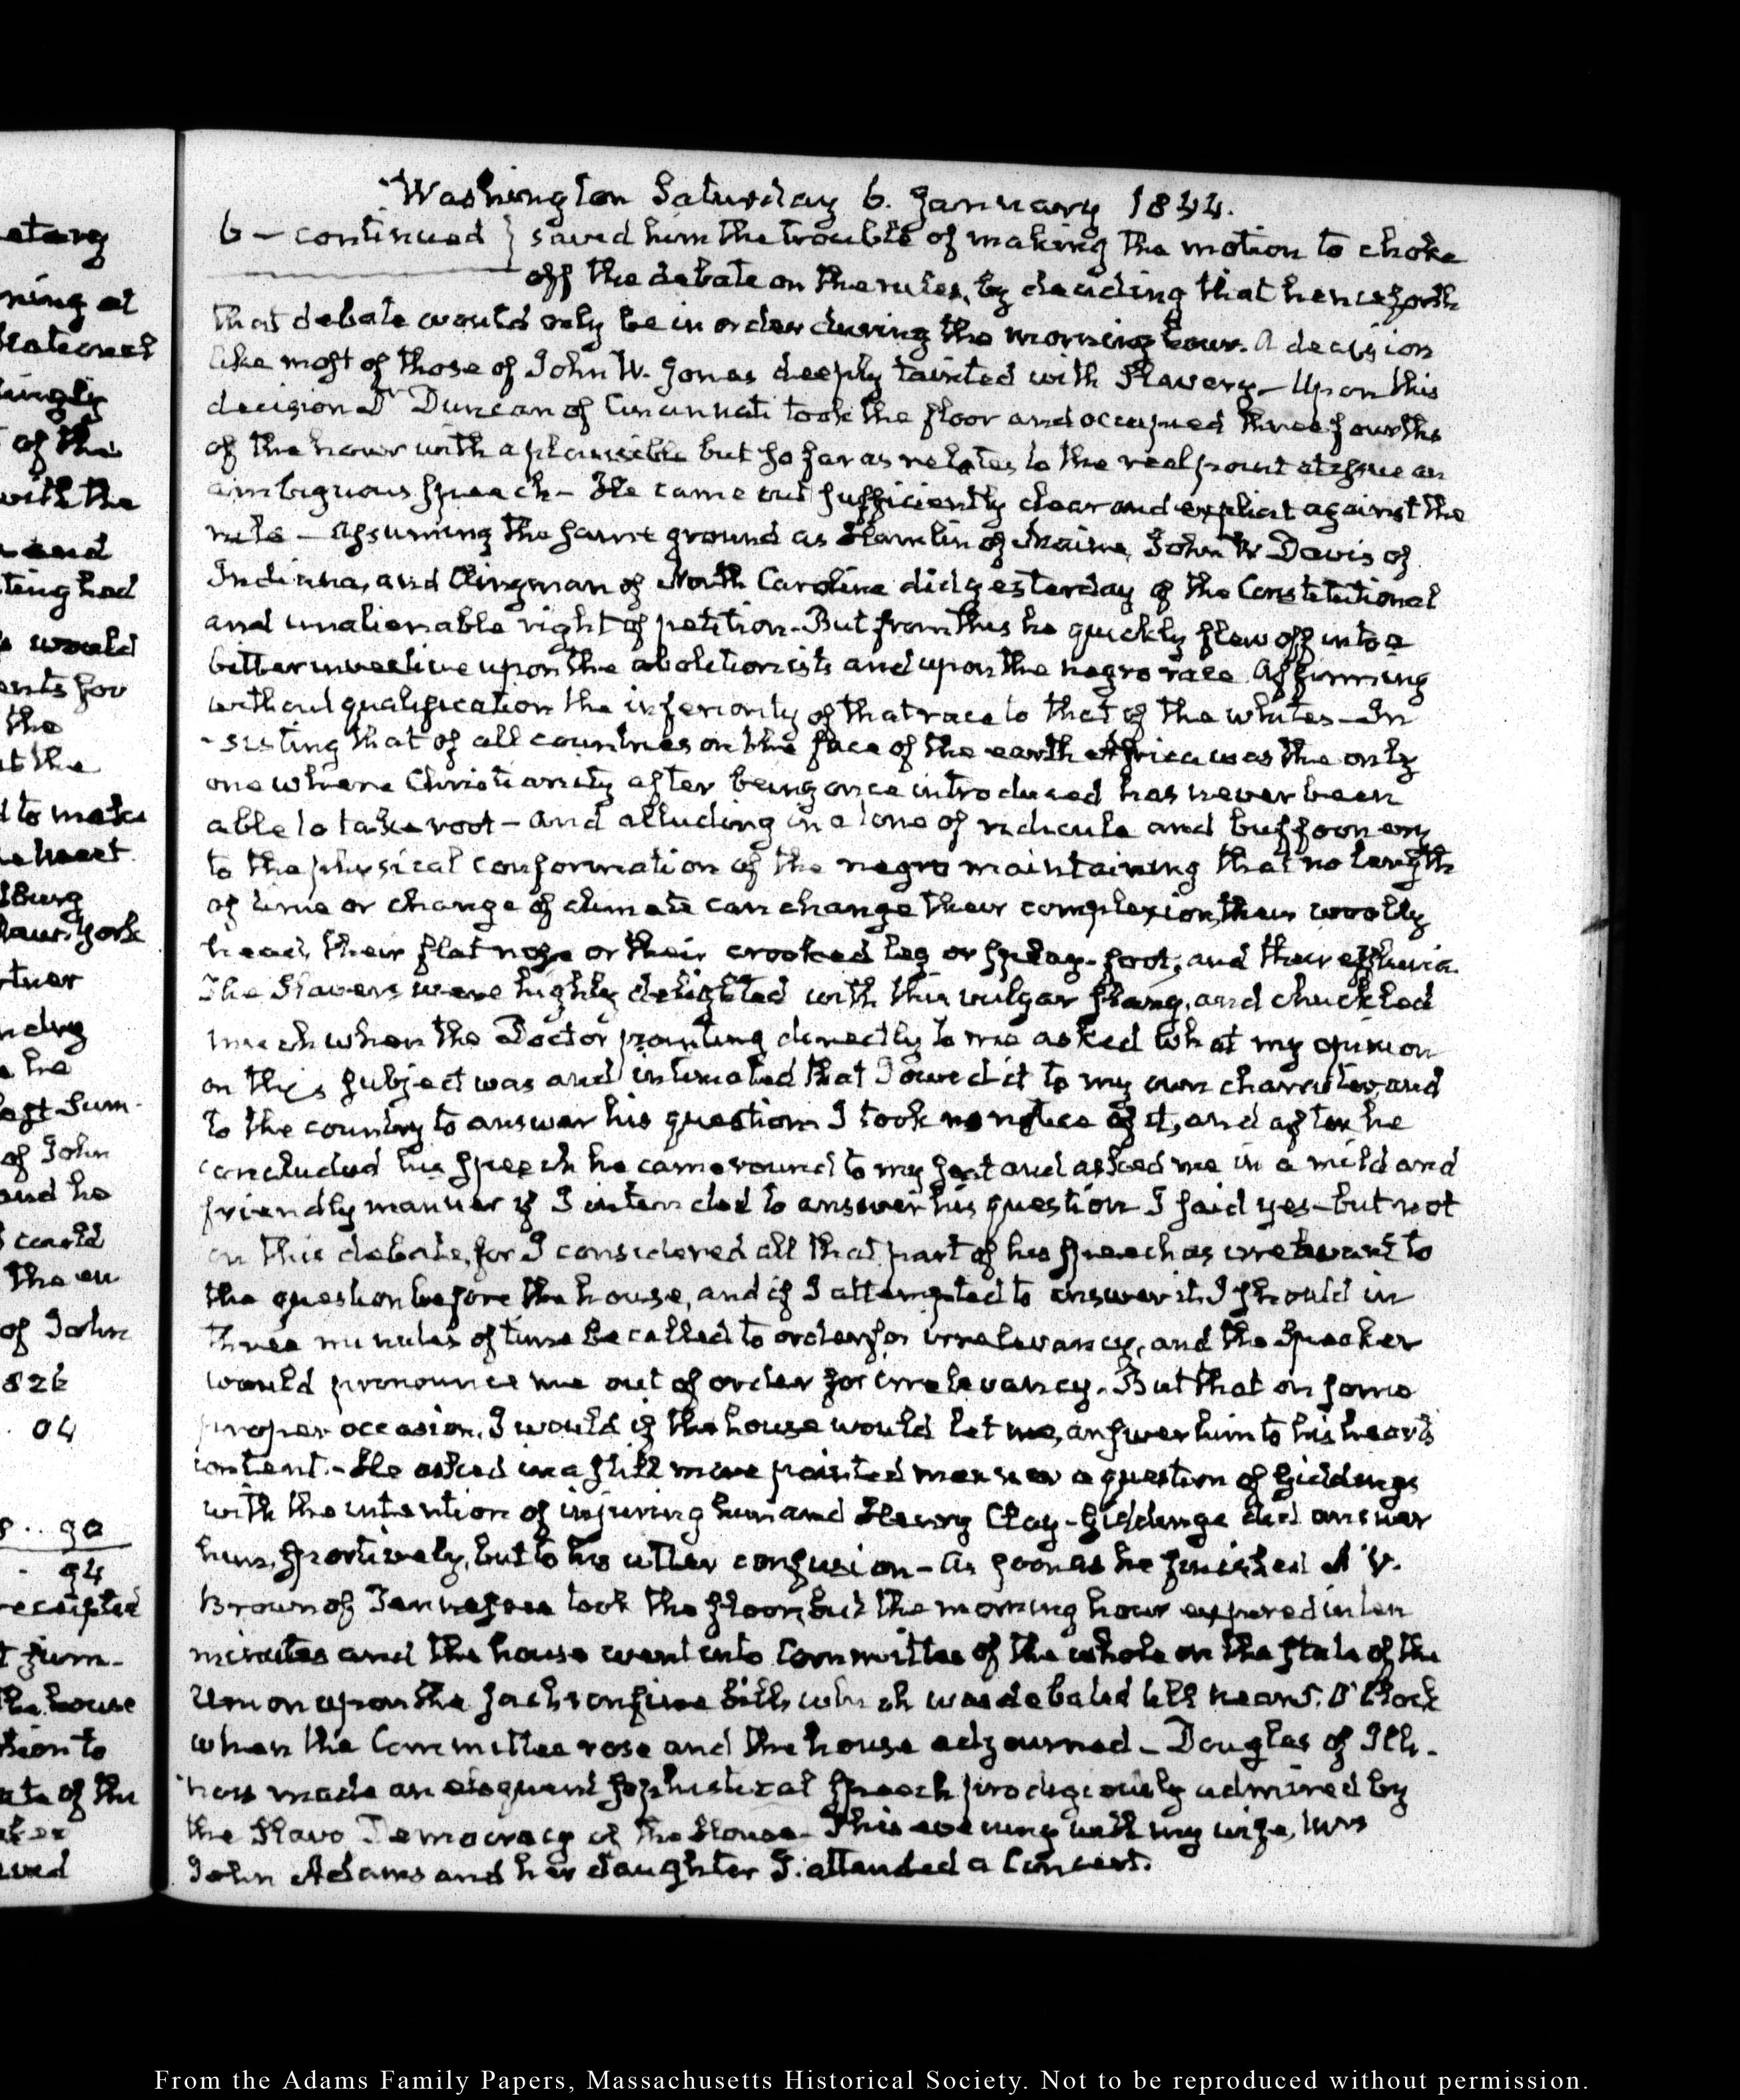 Washington Saturday 6. January 1844.
6 - continued } saved him the trouble of making the motion to choke
off the debate on the rules, by deciding that henceforth
that debate would only be in order during the morning hour. A decision
like most of those of John W. Jones deeply tainted with Slavery - Upon this
decision Dr Duncan of Cincinnati took the floor and occupied three fourths
of the hour with a plausible but so far as relates to the real point at issue an
ambiguous speech - He came out sufficiently clear and explicit against the
rule - assuming the same ground as Hamlin of Maine, John W Davis of
Indiana, and Clingman of North Carolina did yesterday of the Constitutional
and unalienable right of petition - But from this he quickly flew off into a
bitter invective upon the abolitionists and upon the negro race affirming
without qualification the inferiority of that race to that of the whites - In
-sisting that of all countries on the face of the earth Africa was the only
one where Christianity after being once introduced has never been
able to take root - and alluding in a tone of ridicule and buffoonery
to the physical conformation of the negro maintaining that no length
of time or change of climate can change their complexion, their woolly
head, their flat nose or their crooked leg or splay-foot, and their effluvia.
The Slavers were highly delighted with this vulgar slang, and chuckled
much when the Doctor pointing directly to me asked what my opinion
on this subject was and intimated that I owed it to my own character, and
to the country to answer his question. I took no notice of it, and after he
concluded his speech he came round to my seat and asked me in a mild and
friendly manner if I intended to answer his question I said yes - but not
on this debate, for I considered all that part of his speech as irrelevant to
the question before the house, and if I attempted to answer it, I should in
three minutes of time be called to order for irrelevancy, and the Speaker
would pronounce me out of order for irrelevancy. But that on some
proper occasion, I would if the house would let me, answer him to his heart's
content. - He asked in a still more pointed manner a question of Giddings
with the intention of injuring him and Henry Clay - Giddings did answer
him, sportively, but to his utter confusion - As soon as he finished A. V.
Brown of Tennessee took the floor, but the morning hour expired in ten
minutes and the house went into Committee of the whole on the State of the
Union upon the Jackson fine bill, which was debated till near 5. O'Clock
when the Committee rose and the house adjourned - Douglas of Illi-
nois made an eloquent sophistical speech prodigiously admired by
the Slave Democracy of the House - This evening with my wife, Mrs
John Adams and her daughter I attended a Concert.
From the Adams Family Papers, Massachusetts Historical Society. Not to be reproduced without permission.